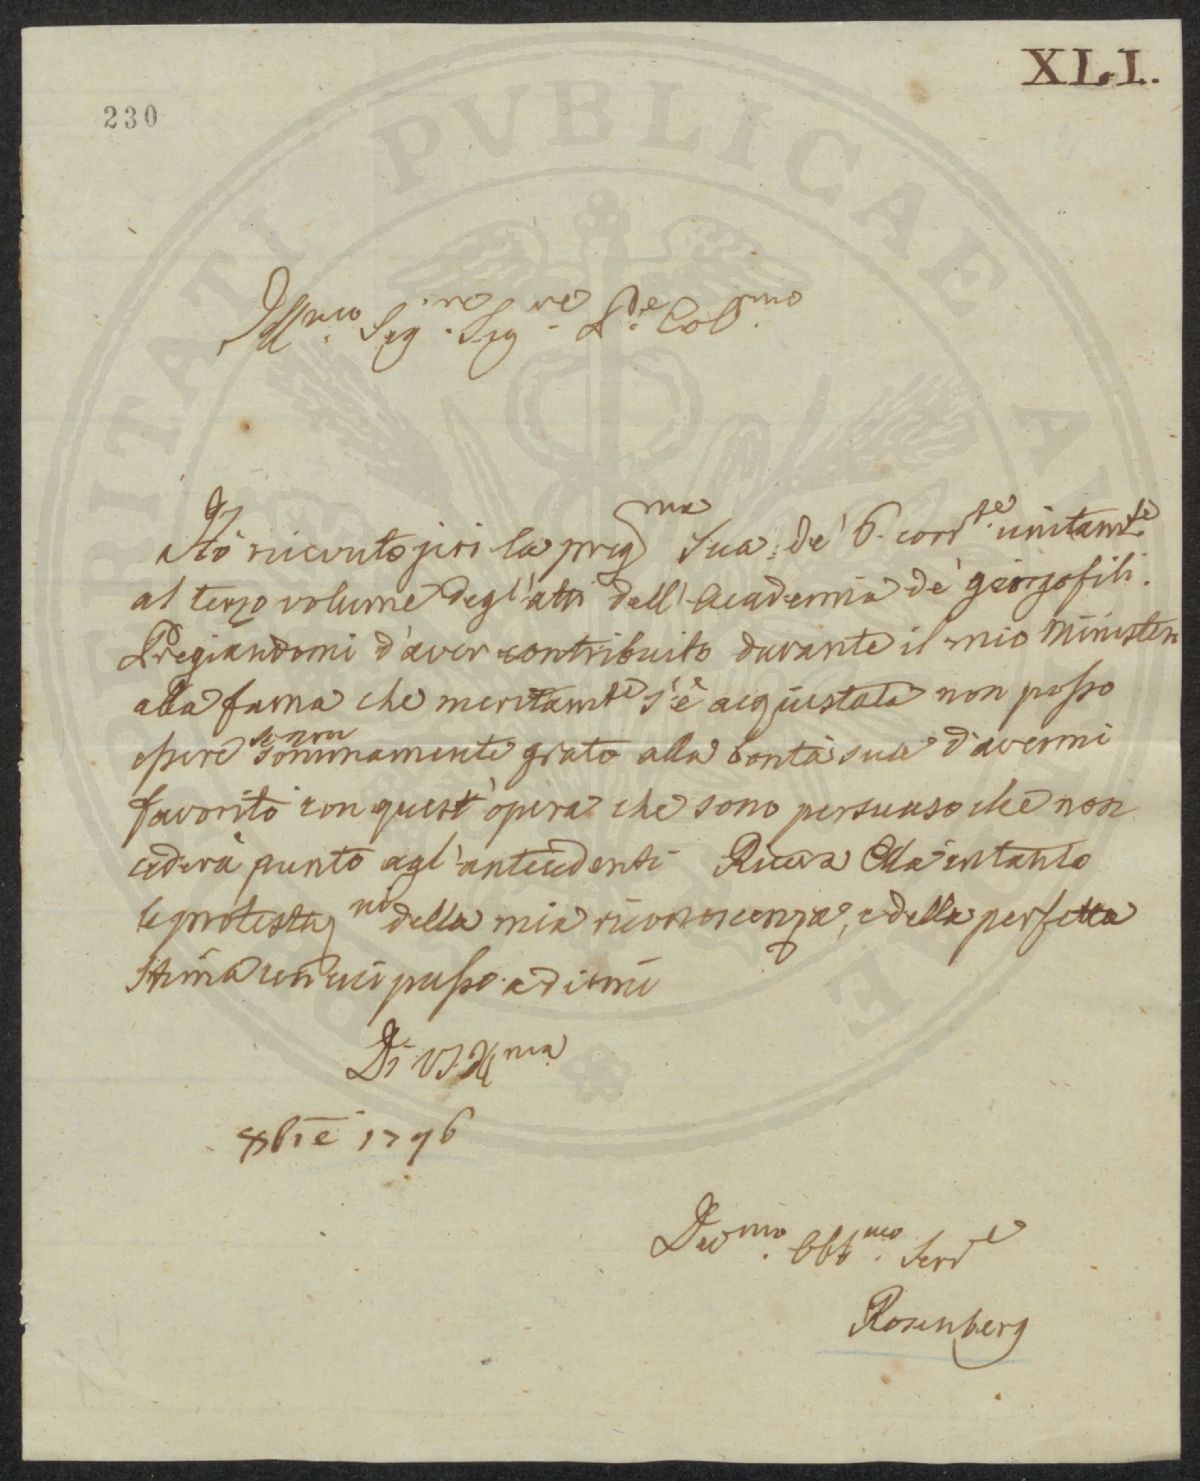 XLI.
230
PROSPERITATI PVBLICAE AVGENDAE
Ill.mo Sig.re Sig.re P.ne Col.mo
Hò ricevuto jeri la preg.ma Sua de' 6. corr.te unitam.te
al terzo volume degl'atti dell'Academia de' georgofili.
Pregiandomi d'aver contribuito durante il mio Minister
alla fama che meritam.te s'è acquistata non posso
essere se non sommamente grato alla bontà sua d'avermi
favorito con quest'opera che sono persuaso che non
cederà punto agl'antecedenti Riceva Ella intanto
le protestaz.ni della mia riconoscenza, e della perfetta
stima con cui passo a dirmi
Di VS. Ill.ma
8bre 1796
Dev.mo Obb.mo Serv.e
Rosenberg